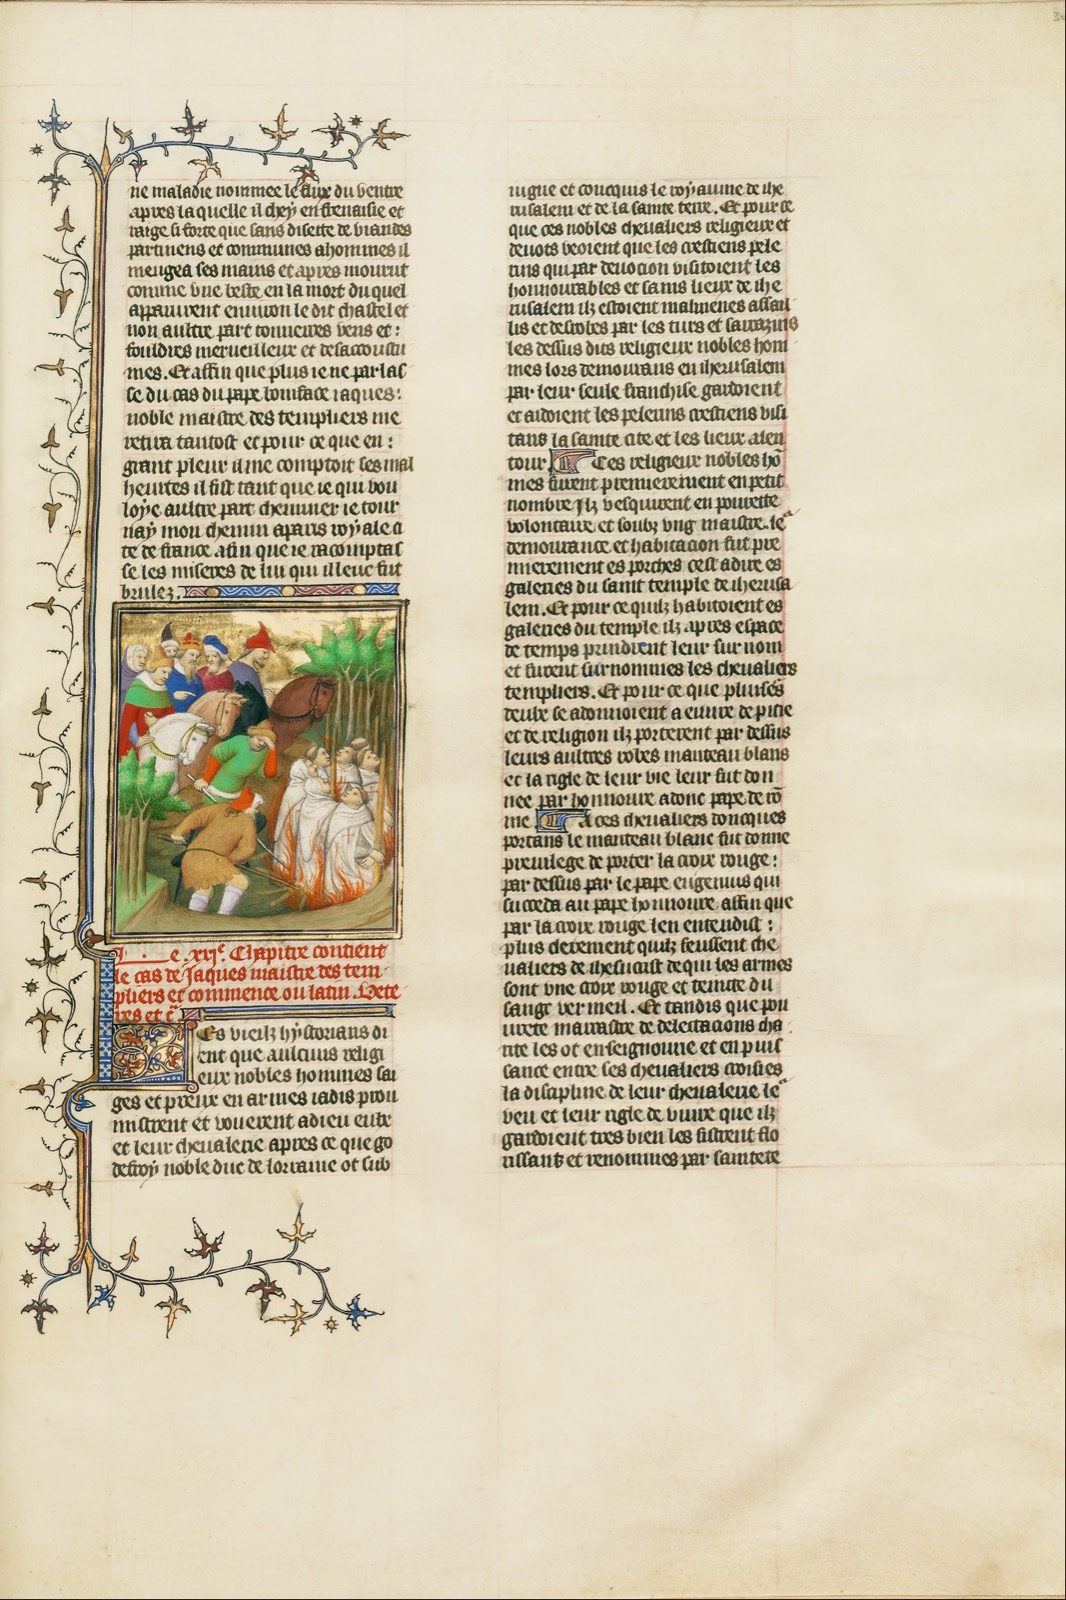 ne maladie nommee le flux du ventre
apres laquelle il chey en frenaisie et
raige si forte que sans disette de viandes
partinens et communes a hommes il
menga ses mains et apres mourut
comme vne beste en la mort du quel
apparurent enuiron le dit chastel et
non aultre part tonnerres vens et :
fouldres merueilleux et desaccoustu
mes. Et affin que plus ie ne parlas
se du cas du pape boniface iaques :
noble maistre des templiers me
retira tantost et pour ce que en :
grant pleur il me comptoit ses mal
heurtes il fist tant que ie qui vou
loye aultre part cheminer ie tour
nay mon chemin a paris royale ci
te de france afin que ie racomptas
se les miseres de lui qui illeuc fut
brulez.
Le .xxi.e Chapitre contient
le cas de Jaques maistre des tem
pliers et commence ou latin. Vete
res et c.
Les vieilz hystorians di
ent que aulcuns religi
eux nobles hommes sai
ges et preux en armes iadis prou
mistrent et vouerent a dieu eulx
et leur cheualerie apres ce que go
defroy noble duc de lorraine ot sub
iugue et conquis le royaume de ihe
rusalem et de la sainte terre. Et pour ce
que ces nobles cheualiers religieux et
deuots veoient que les crestiens pele
rins qui par deuocion visitoient les
honnourables et sains lieux de ihe
rusalem ilz estoient malmenes assail
lis et desrobes par les turs et sarrazins
les dessus dits religieux nobles hom
mes lors demourans en iherusalem
par leur seule franchise gardoient
et aidoient les pelerins crestiens visi
tans la sainte cite et les lieux alen
tour Ces religieux nobles hõ
mes furent premierement en petit
nombre Ilz vesquirent en pourette
volontaire et soubz vng maistre. le
demourance et habitacion fut pre
mierement es porches cest a dire es
galeries du saint temple de iherusa
lem. Et pour ce quilz habitoient es
galeries du temple ilz apres espace
de temps prindrent leur surnom
et furent surnommes les cheualiers
templiers. Et pour ce que pluises
deulx se adonnoient a euure de pitie
et de religion ilz porterent par dessus
leurs aultres robes manteau blans
et la rigle de leur vie leur fut don
nee par honnoure adonc pape de rõ
me A ces cheualiers doncques
portans le manteau blanc fut donne
preuilege de porter la croix rouge :
par dessus par le pape eugenius qui
succeda au pape honnoure affin que
par la croix rouge len entendist :
plus clerement quilz feussent che
ualiers de ihesucrist de qui les armes
sont vne croix rouge et teinte du
sange vermeil. Et tandis que pou
urete marrastre de delectacions cha
rite les ot en seignourie et en puis
sance entre ses cheualiers croisies
la discipline de leur cheualerie le
veu et leur rigle de viure que ilz
gardoient tres bien les fistrent flo
rissans et renommes par saintete